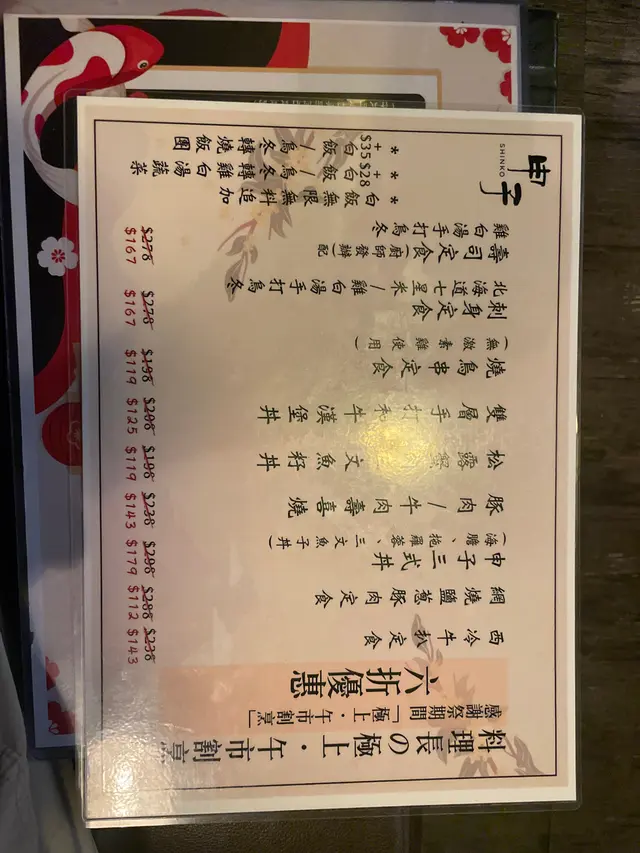 料理長の極上・午市割烹
感謝祭期間「極上・午市割烹」
六折優惠
西冷牛扒定食 $238 $143
網燒鹽蔥豚肉定食 $188 $112
申子三式丼 $298 $179
(海膽、拖羅蓉、三文魚子丼)
豚肉/牛肉壽喜燒 $238 $143
松露 文魚籽丼 $198 $119
雙層手打和牛漢堡丼 $208 $125
燒鳥串定食 $198 $119
(無激素雞使用)
刺身定食 $278 $167
北海道七星米/雞白湯手打烏冬
壽司定食(廚師發辦配) $278 $167
雞白湯手打烏冬
*白飯無限無料追加
*白飯/烏冬轉雞白湯蔬菜 +$28
*白飯/烏冬轉燒飯團 +$35
申子
SHINKO